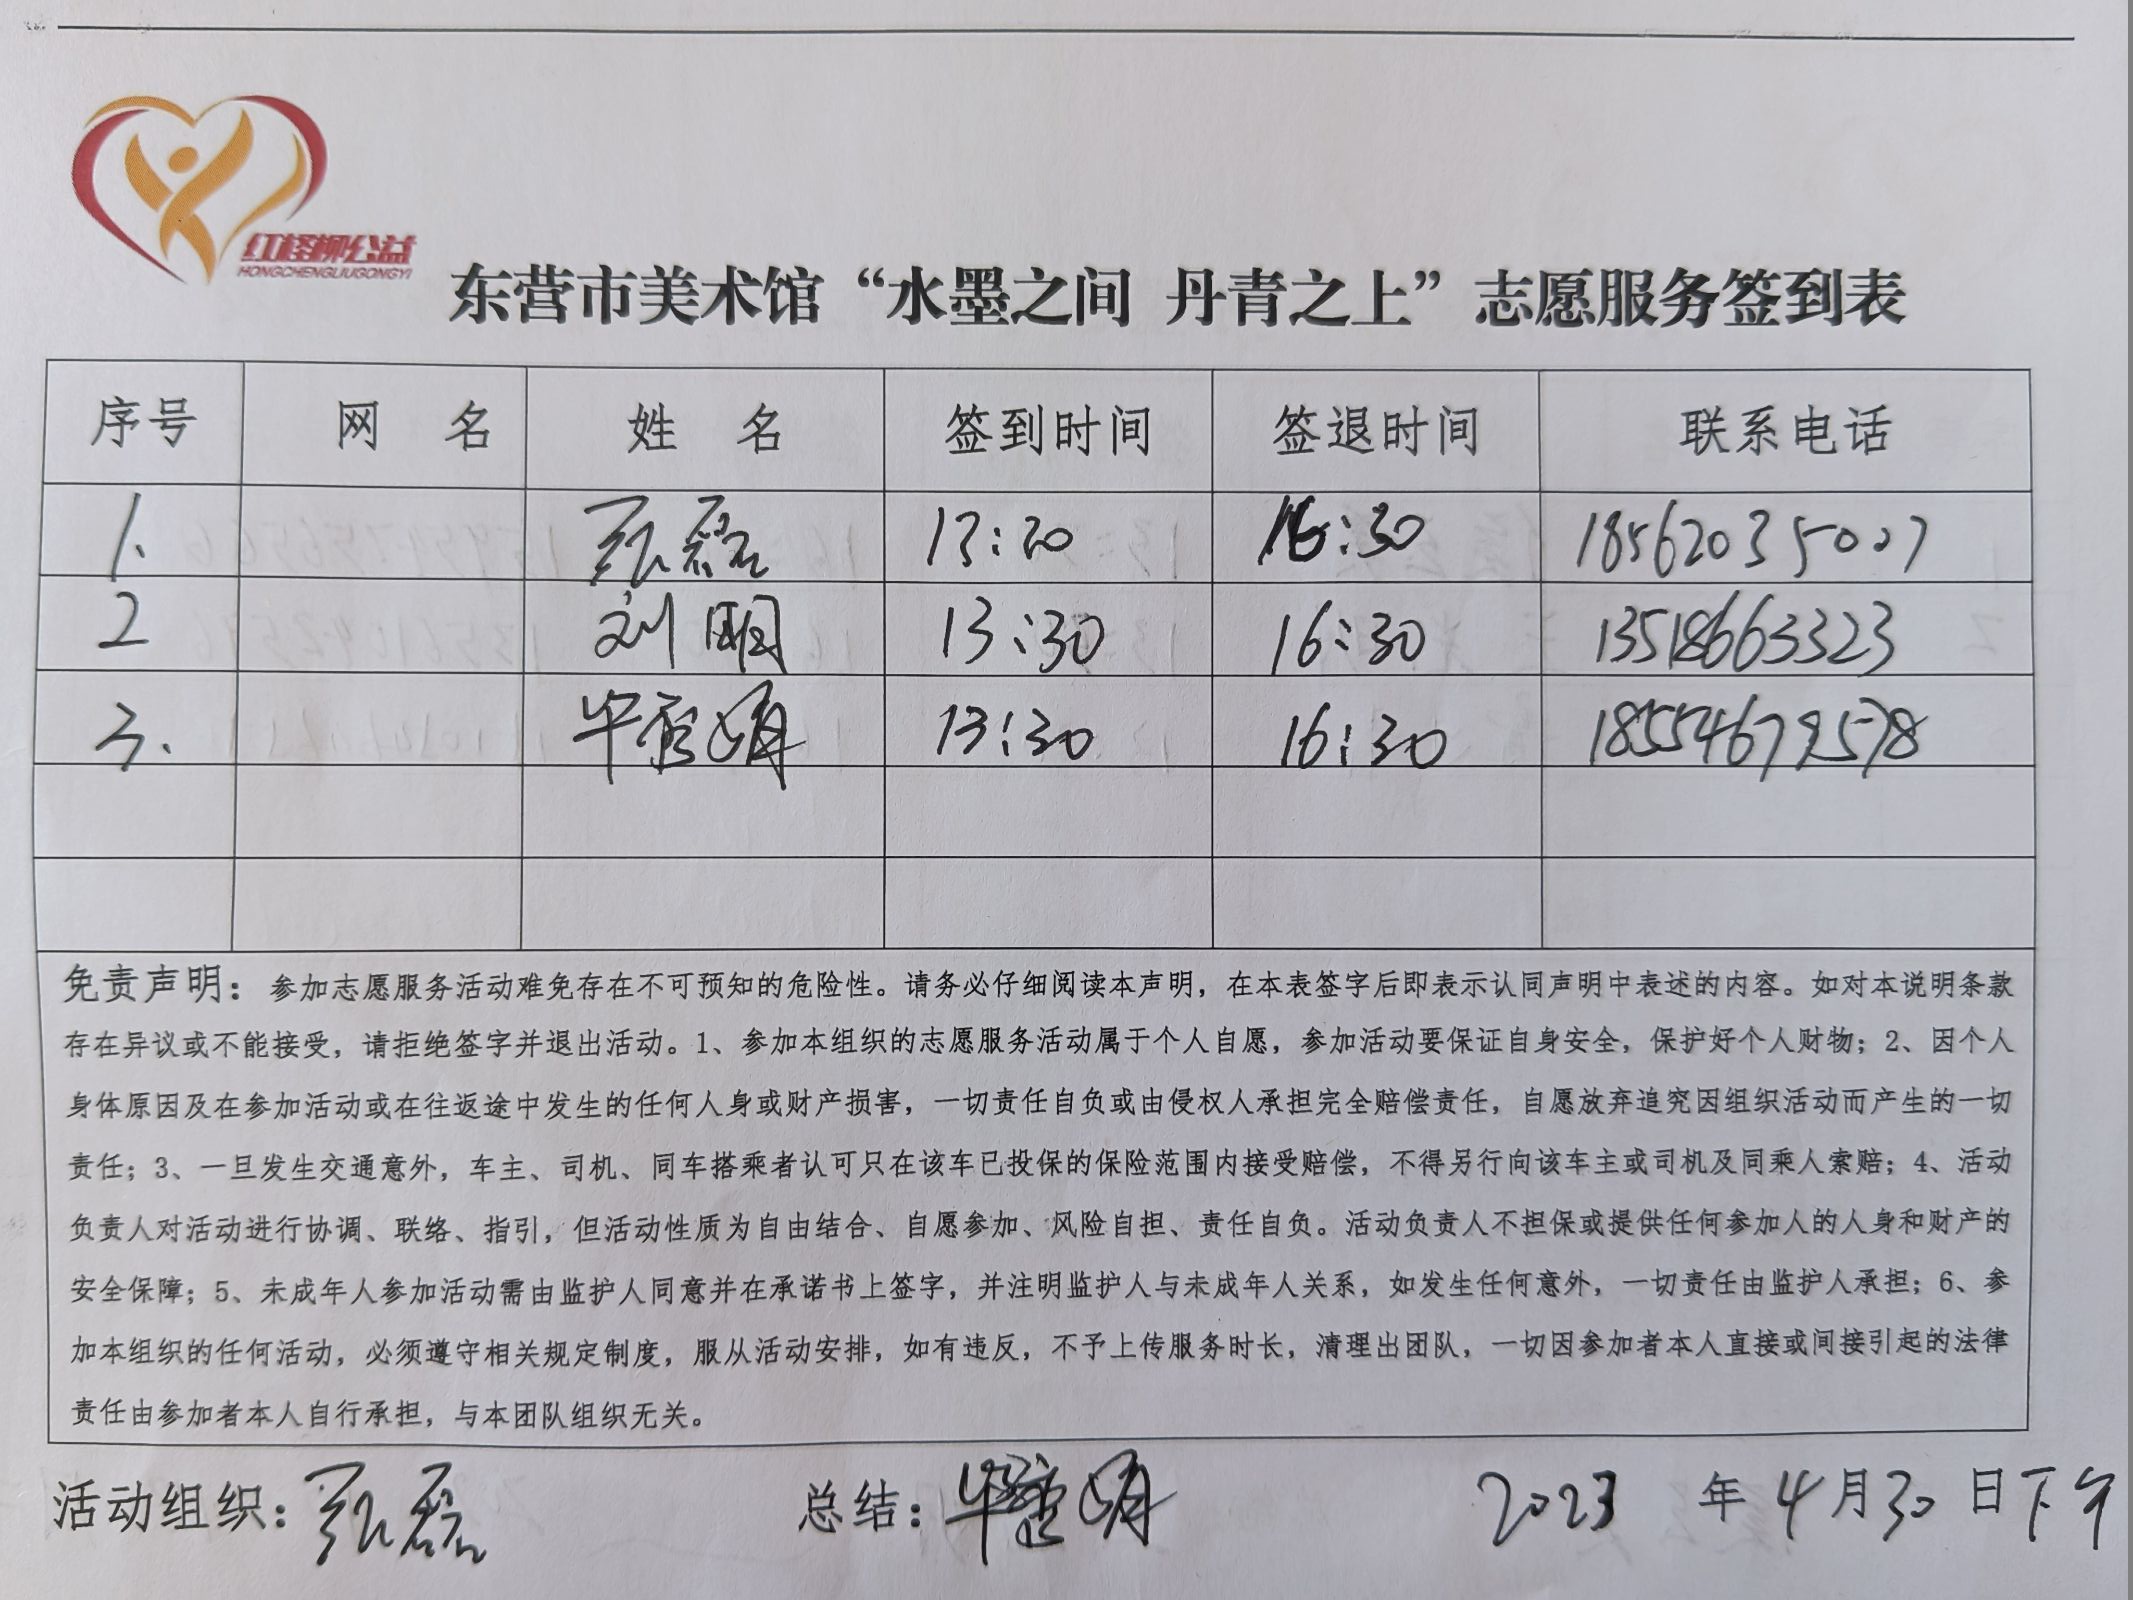 红柽柳公益
HONGCHENGLIUGONGYI
东营市美术馆“水墨之间 丹青之上”志愿服务签到表
序号 网 名 姓 名 签到时间 签退时间 联系电话
1、 张磊 13:30 16:30 18562035007
2 刘明 13:30 16:30 13518663323
3、 毕 明 13:30 16:30 18554679578
免责声明：参加志愿服务活动难免存在不可预知的危险性。请务必仔细阅读本声明，在本表签字后即表示认同声明中表述的内容。如对本说明条款
存在异议或不能接受，请拒绝签字并退出活动。1、参加本组织的志愿服务活动属于个人自愿，参加活动要保证自身安全，保护好个人财物；2、因个人
身体原因及在参加活动或在往返途中发生的任何人身或财产损害，一切责任自负或由侵权人承担完全赔偿责任，自愿放弃追究因组织活动而产生的一切
责任；3、一旦发生交通意外，车主、司机、同车搭乘者认可只在该车已投保的保险范围内接受赔偿，不得另行向该车主或司机及同乘人索赔；4、活动
负责人对活动进行协调、联络、指引，但活动性质为自由结合、自愿参加、风险自担、责任自负。活动负责人不担保或提供任何参加人的人身和财产的
安全保障；5、未成年人参加活动需由监护人同意并在承诺书上签字，并注明监护人与未成年人关系，如发生任何意外，一切责任由监护人承担；6、参
加本组织的任何活动，必须遵守相关规定制度，服从活动安排，如有违反，不予上传服务时长，清理出团队，一切因参加者本人直接或间接引起的法律
责任由参加者本人自行承担，与本团队组织无关。
活动组织：张磊 总结：毕 明 2023 年 4 月 30 日下午